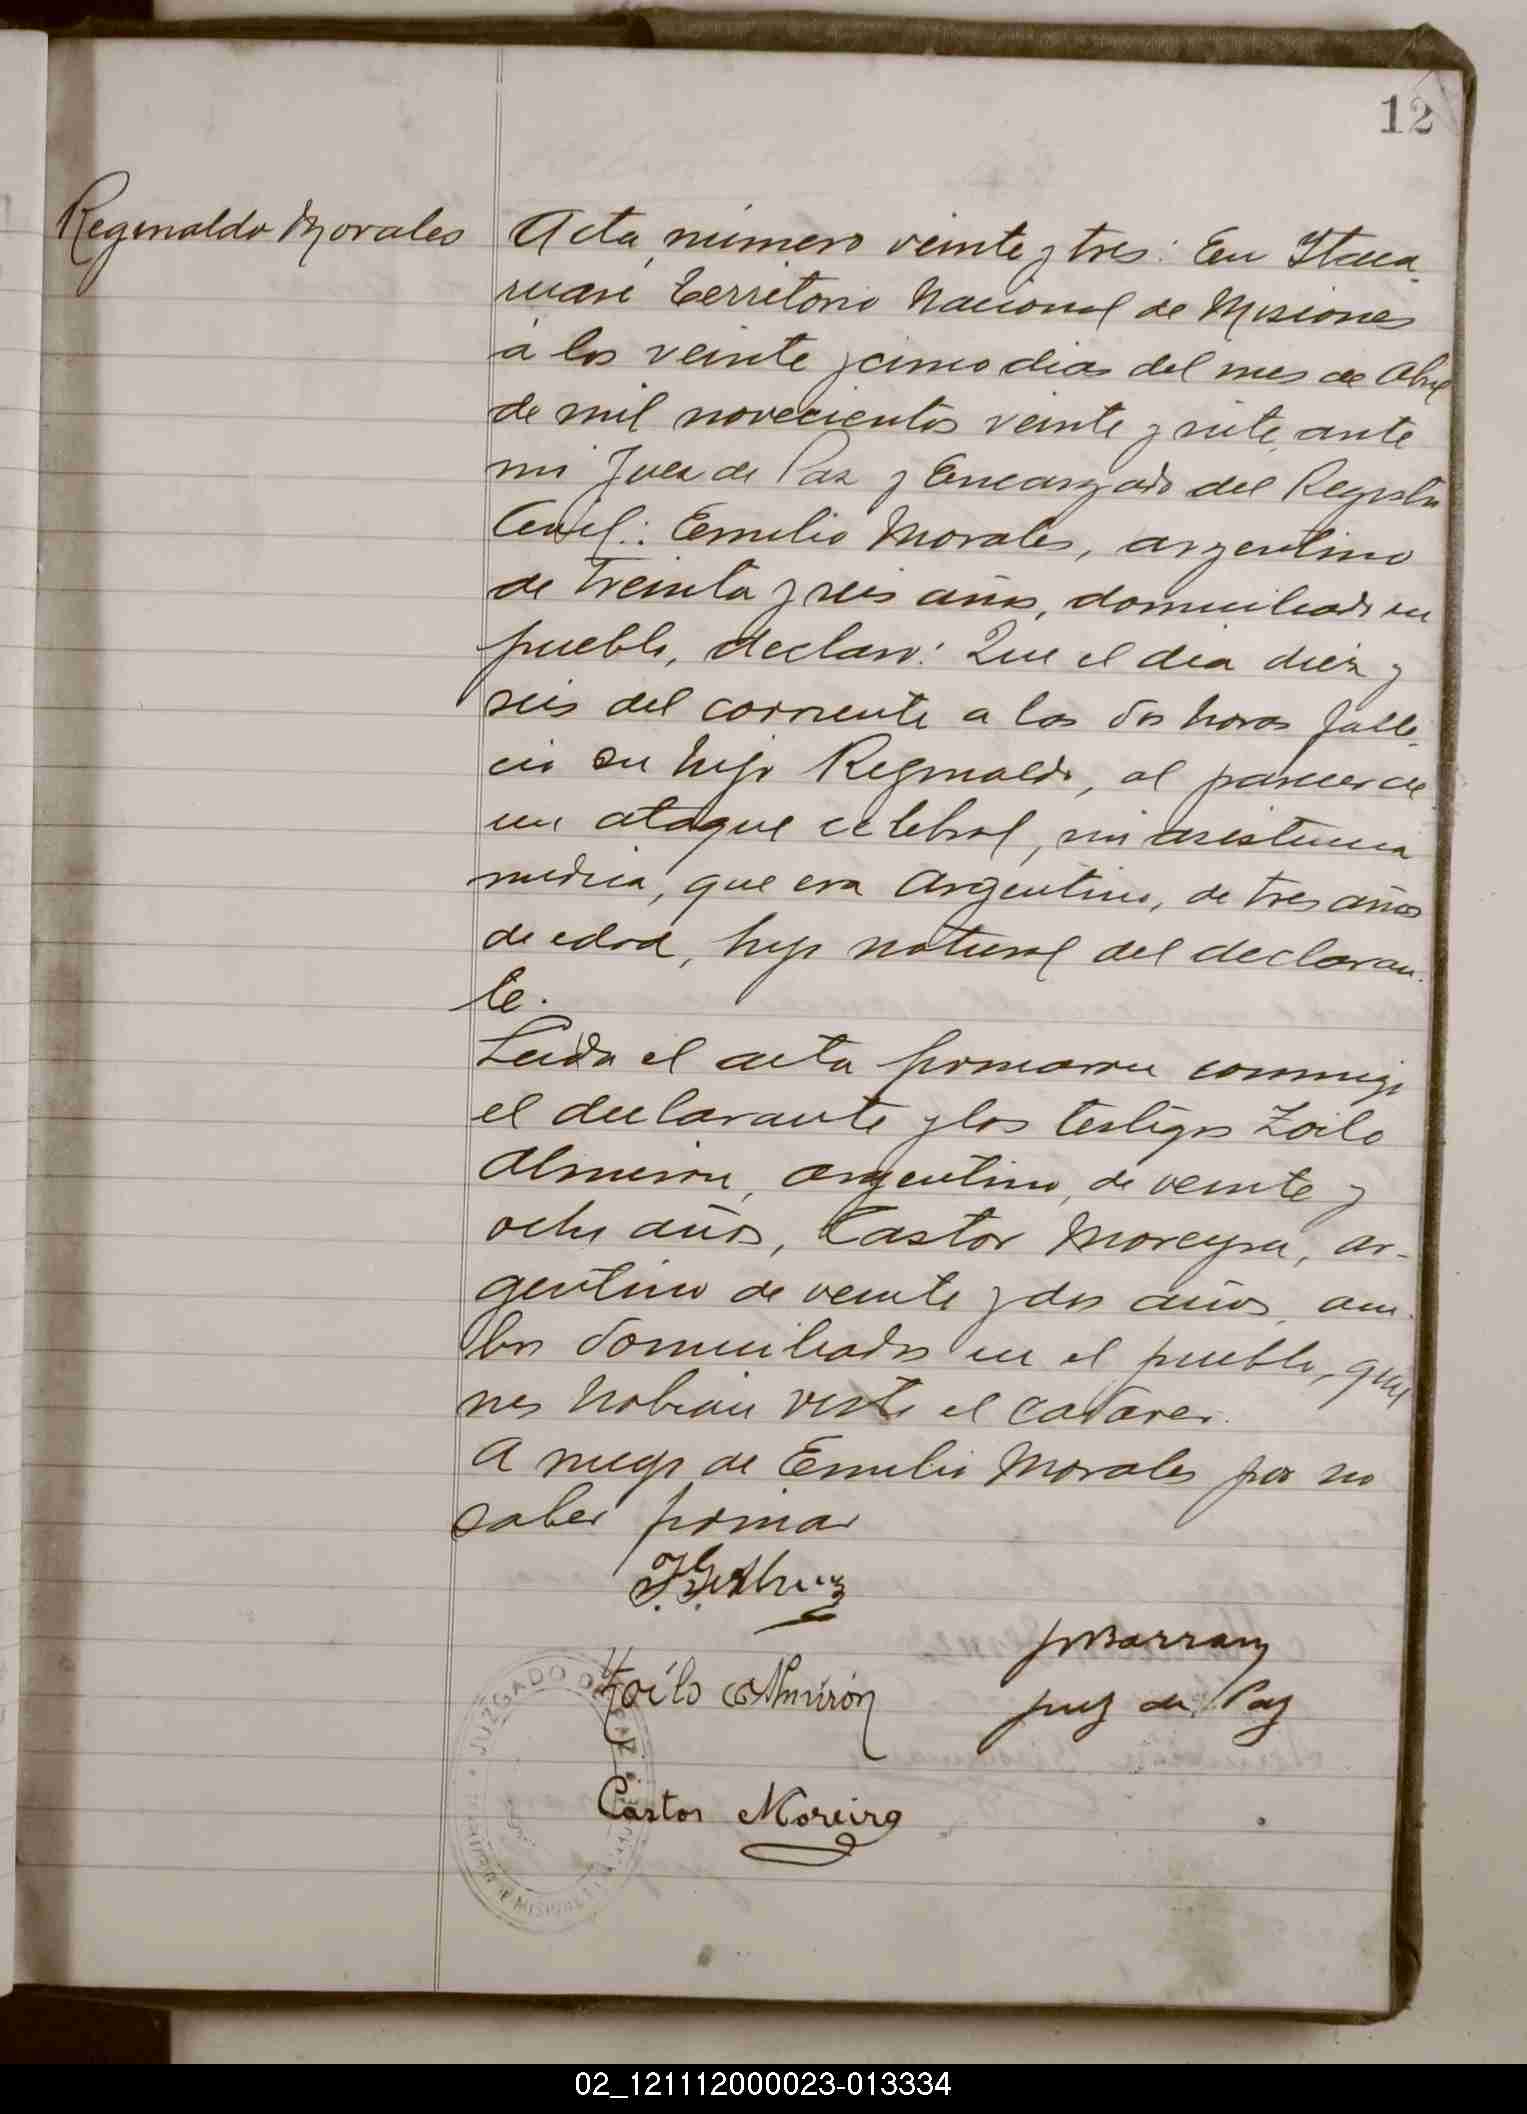 12
Reginaldo Morales
Acta número veinte y tres: En Itaca
ruaré Territorio Nacional de Misiones
á los veinte y cinco dias del mes de Abril
de mil novecientos veinte y siete, ante
mi Juez de Paz y Encargado del Registro
Civil: Emilio Morales, argentino
de treinta y seis años, domiciliado en
pueblo, declaro: Que el dia diez y
seis del corriente a las dos horas falle-
cio su hijo Reginaldo, al parecer de
un ataque celebral, sin asistencia
medica, que era Argentino, de tres años
de edad, hijo natural del declaran-
te.
Leida el acta firmaron conmigo
el declarante y los testigos Zoilo
Almiron, argentino, de veinte y
ocho años, Castor Moreyra, ar-
gentino de veinte y dos años, am-
bos domiciliados en el pueblo, quie
nes habian visto el cadaver.
A ruego de Emilio Morales por no
saber firmar
Juez de Paz
Zoilo Almirón
Castor Moreira
JUZGADO DE PAZ
MISIONES
02_121112000023-013334